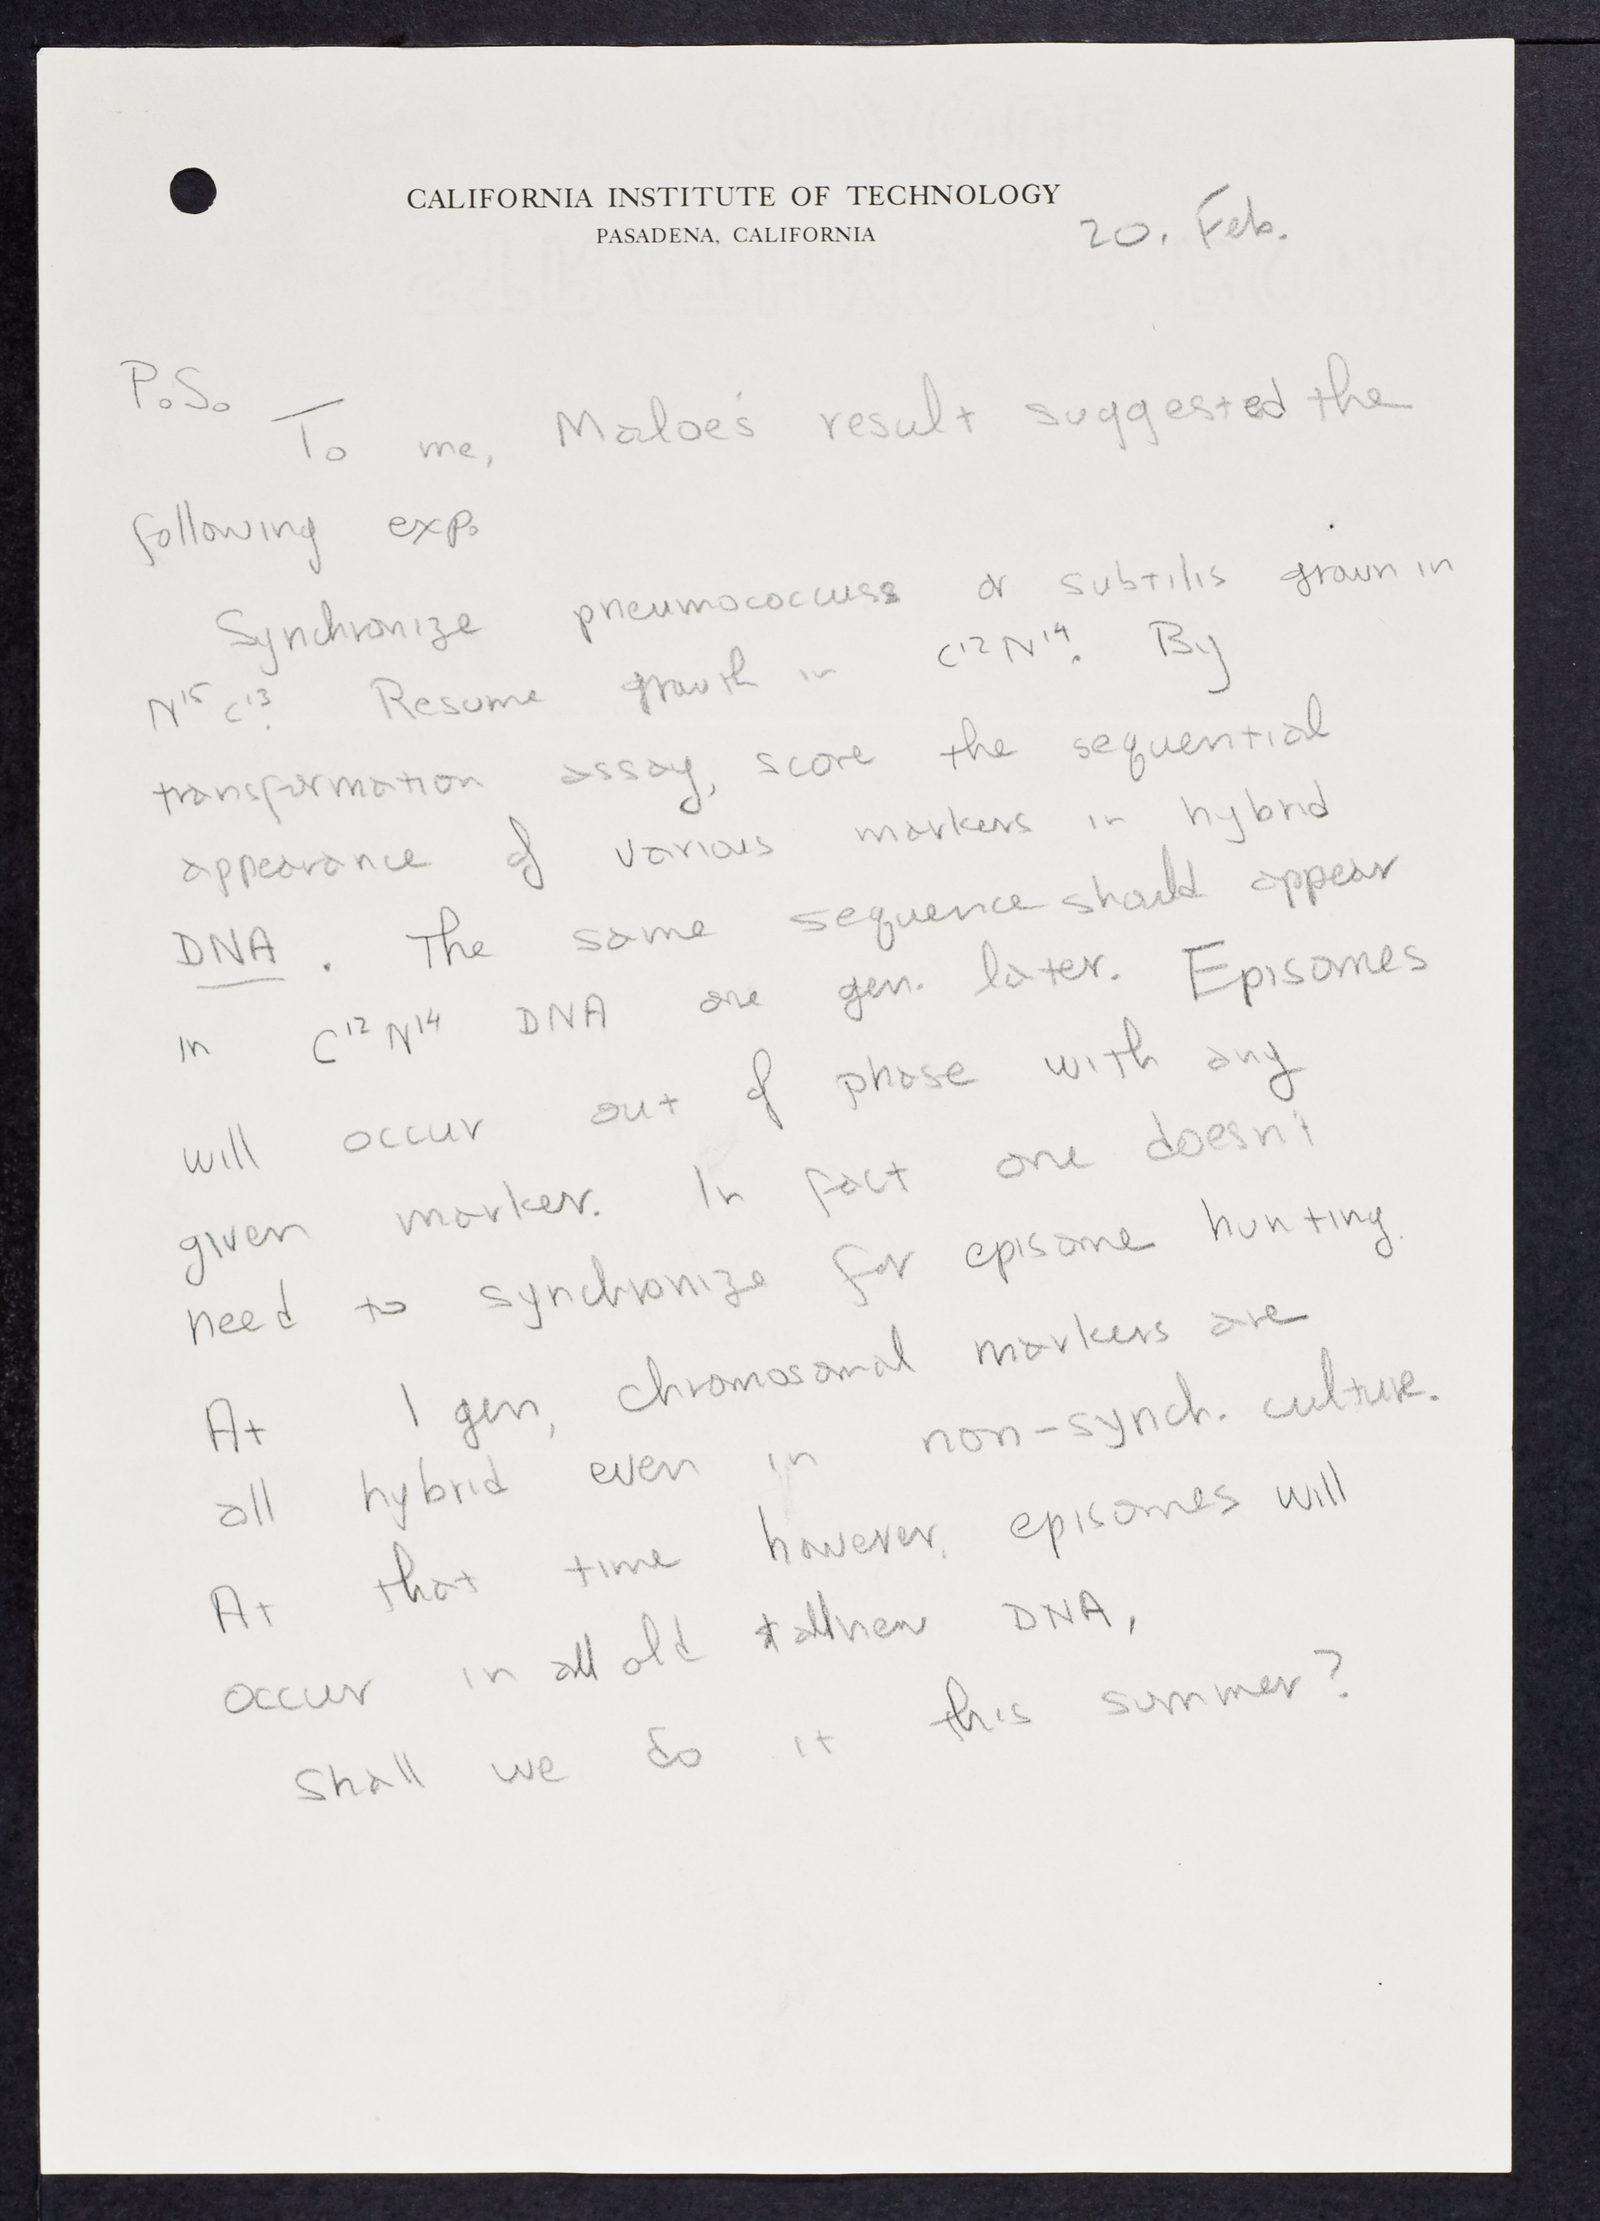 CALIFORNIA INSTITUTE OF TECHNOLOGY
PASADENA, CALIFORNIA
20. Feb.
P.S. To me, Maloe's result suggested the
following exp.
Synchronize pneumococcuss or subtilis grown in
N15 C13. Resume growth in C12 N14. By
transformation assay, score the sequential
appearance of various markers in hybrid
DNA. The same sequence should appear
in C12 N14 DNA one gen. later. Episomes
will occur out of phase with any
given marker. In fact one doesn't
need to synchronize for episome hunting.
At 1 gen, chromosomal markers are
all hybrid even in non-synch. culture.
At that time however, episomes will
occur in all old + all new DNA.
Shall we do it this summer?